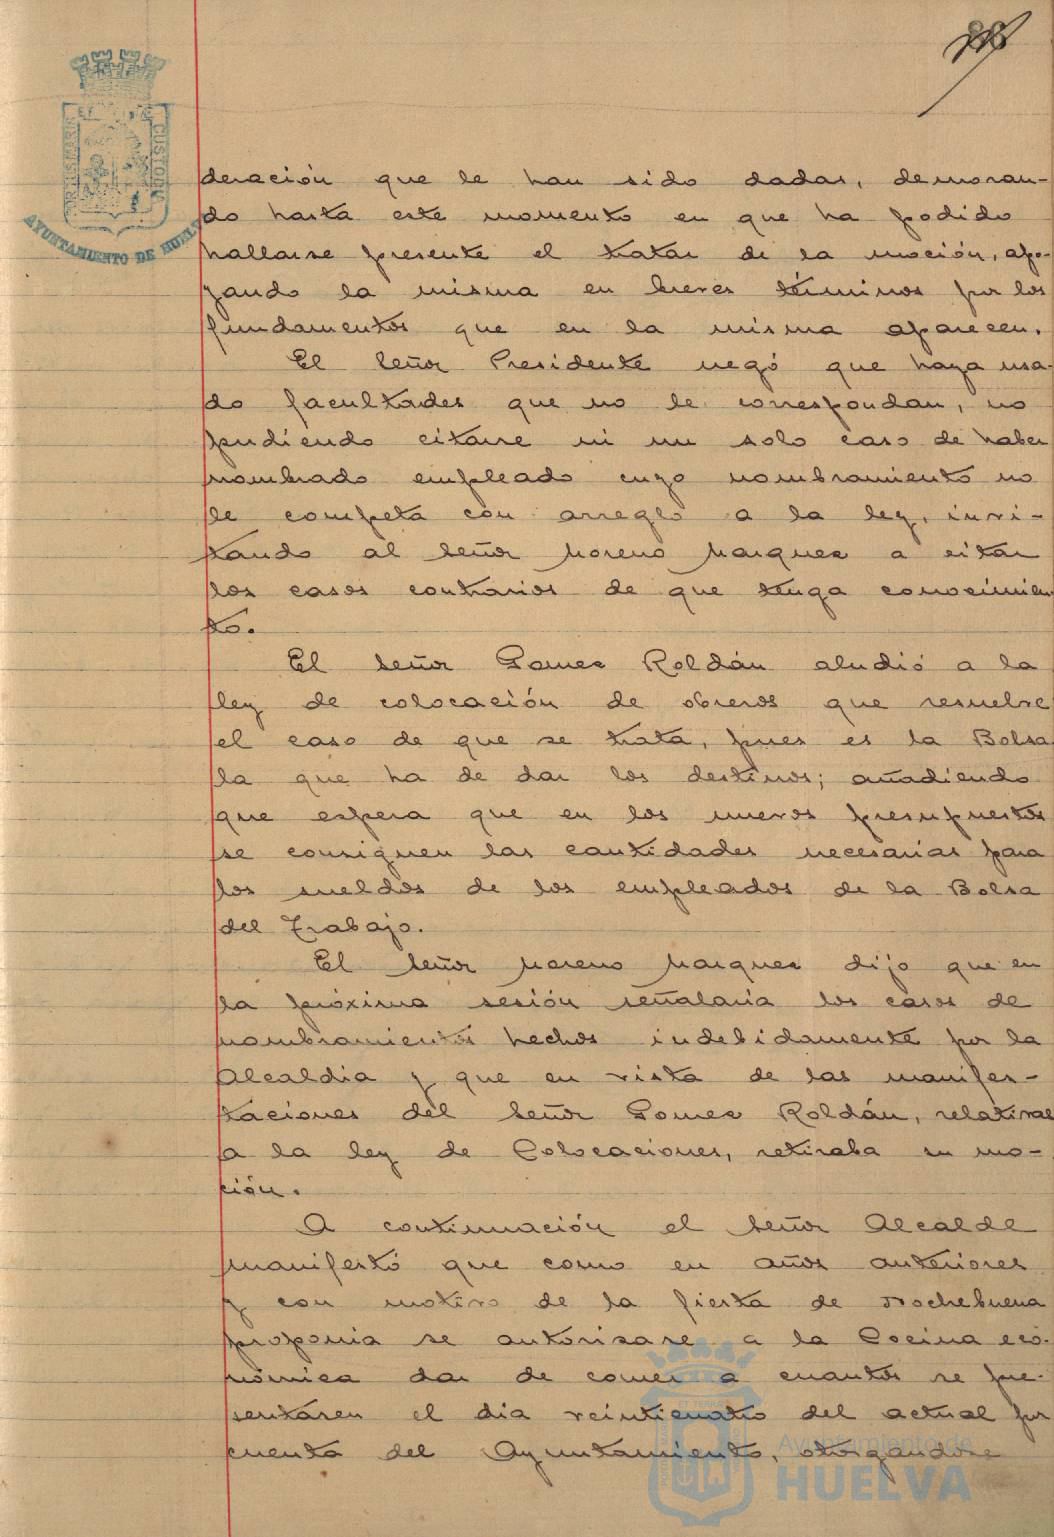 88
PORTUS MARIS ET TERRÆ CUSTODIA
AYUNTAMIENTO DE HUELVA
deración que le han sido dadas, demoran-
do hasta este momento en que ha podido
hallarse presente el tratar de la moción, apo-
yando la misma en breves términos por los
fundamentos que en la misma aparecen.
El Señor Presidente negó que haya usa-
do facultades que no le correspondan, no
pudiendo citarse ni un solo caso de haber
nombrado empleado cuyo nombramiento no
le competa con arreglo a la ley, invi-
tando al Señor Moreno Marquez a citar
los casos contrarios de que tenga conocimien
to.
El Señor Gomez Roldán aludió a la
ley de colocación de obreros que resuelve
el caso de que se trata, pues es la Bolsa
la que ha de dar los destinos; añadiendo
que espera que en los nuevos presupuestos
se consignen las cantidades necesarias para
los sueldos de los empleados de la Bolsa
del Trabajo.
El Señor Moreno Marquez dijo que en
la próxima sesión señalaria los casos de
nombramientos hechos indebidamente por la
Alcaldia y que en vista de las manifes-
taciones del Señor Gomez Roldán, relativas
a la ley de Colocaciones, retiraba su mo-
ción.
A continuación el Señor Alcalde
manifestó que como en años anteriores
y con motivo de la fiesta de Nochebuena
proponia se autorizase a la Cocina eco-
nómica dar de comer a cuantos se pre-
sentasen el dia veinticuatro del actual por
cuenta del Ayuntamiento, otorgandose
Ayuntamiento de
HUELVA